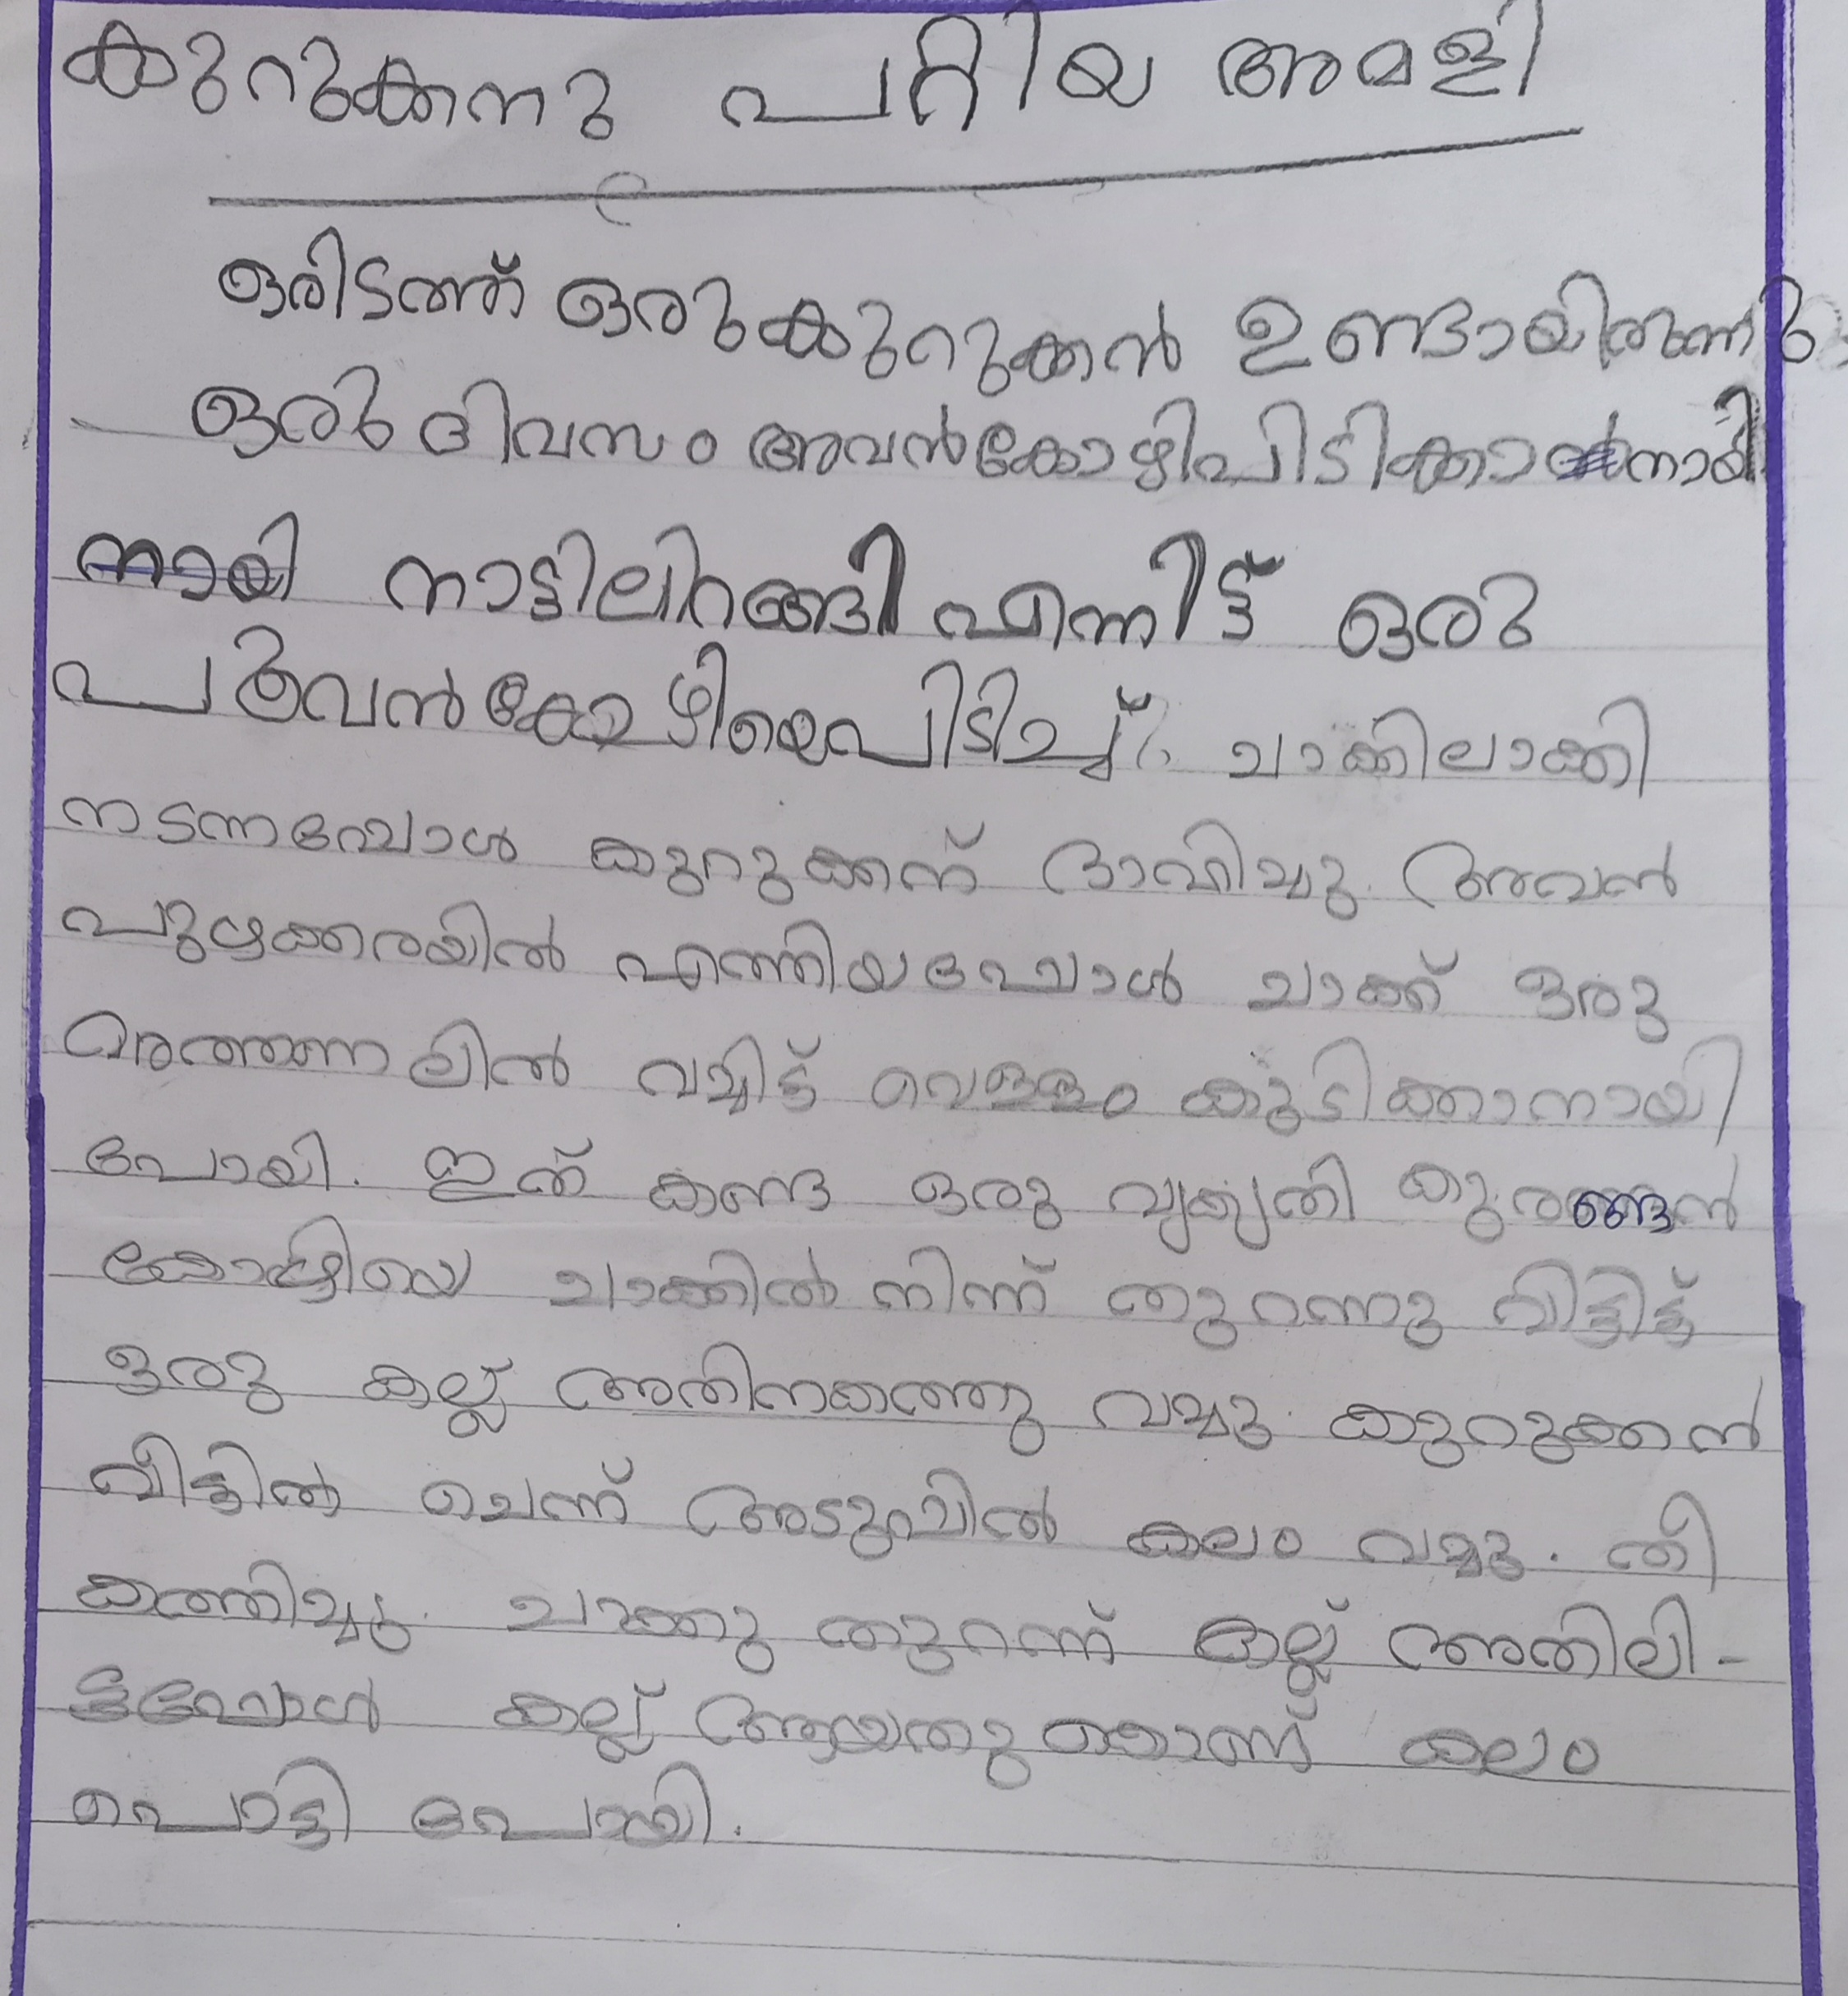 കുറുക്കനു പറ്റിയ അമളി
ഒരിടത്ത് ഒരു കുറുക്കൻ ഉണ്ടായിരുന്നു
ഒരു ദിവസം അവൻ കോഴി പിടിക്കാനായി
നായി നാട്ടിലിറങ്ങി എന്നിട്ട് ഒരു
പൂവൻ കോഴിയെ പിടിച്ച്. ചാക്കിലാക്കി
നടന്നപ്പോൾ കുറുക്കന് ദാഹിച്ചു. അവൻ
പുഴക്കരയിൽ എത്തിയപ്പോൾ ചാക്ക് ഒരു
മരത്തണലിൽ വച്ചിട്ട് വെള്ളം കുടിക്കാനായി
പോയി. ഇത് കണ്ട ഒരു വികൃതി കുരങ്ങൻ
കോഴിയെ ചാക്കിൽ നിന്ന് തുറന്നു വിട്ടിട്ട്
ഒരു കല്ല് അതിനകത്തു വച്ചു. കുറുക്കൻ
വീട്ടിൽ ചെന്ന് അടുപ്പിൽ കലം വച്ചു. തീ
കത്തിച്ചു. ചാക്കു തുറന്ന് കല്ല് അതിലി-
ട്ടപ്പോൾ കല്ല് ആയതുകൊണ്ട് കലം
പൊട്ടി പോയി.